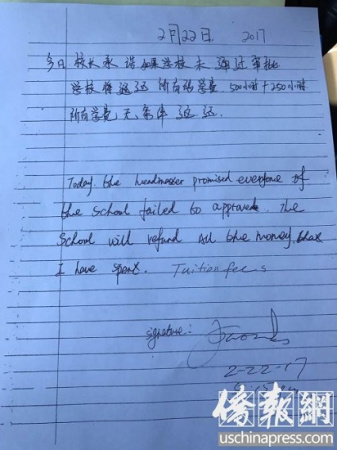 2月22日. 2017
今日 校长承诺如果学校未通过审批
学校将退还所有的学费 500小时+250小时
所有学费无条件返还.
Today. the headmaster promised everyone of
the school failed to approved. The
school will refund all the money that
I have spent. Tuition fees
signature:
2-22-17
僑報網
uschinapress.com